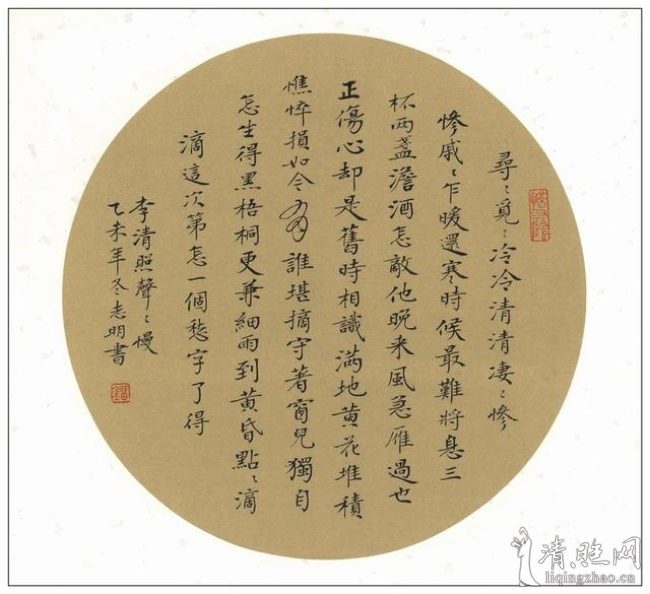 尋〻覓〻冷冷清清凄〻慘
慘戚〻乍暖還寒時候最難將息三
杯两盞澹酒怎敵他晚来風急雁過也
正傷心却是舊時相識滿地黄花堆積
憔悴損如今有誰堪摘守著窗兒獨自
怎生得黑梧桐更兼細雨到黄昏點〻滴
滴這次第怎一個愁字了得
李清照聲〻慢
乙未年冬志明書
清照网
liqingzhao.cn